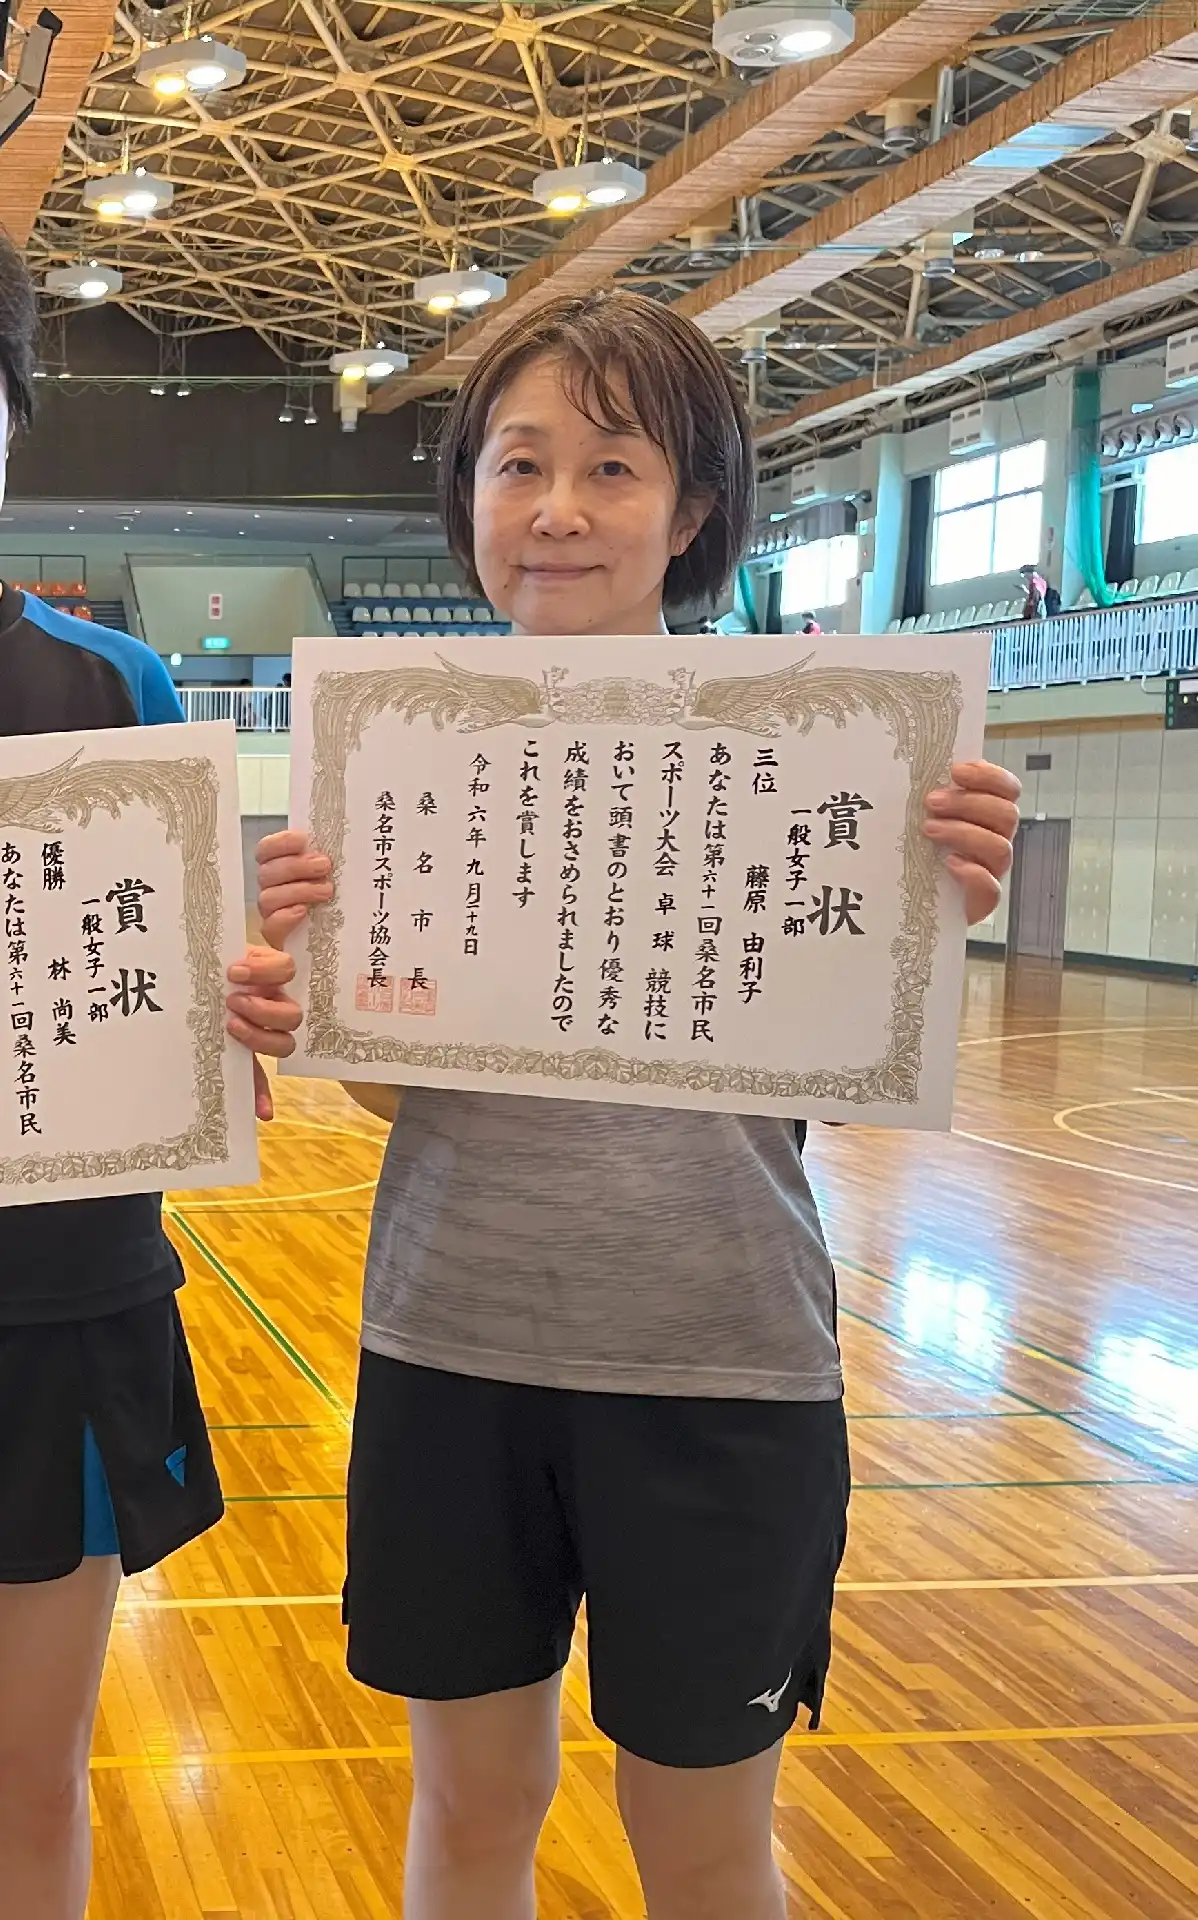 賞状
一般女子一部
三位 藤原 由利子
あなたは第六十一回桑名市民
スポーツ大会 卓球 競技に
おいて頭書のとおり優秀な
成績をおさめられましたので
これを賞します
令和六年九月二十九日
桑名市長
桑名市スポーツ協会長
賞状
一般女子一部
優勝 林 尚美
あなたは第六十一回桑名市民